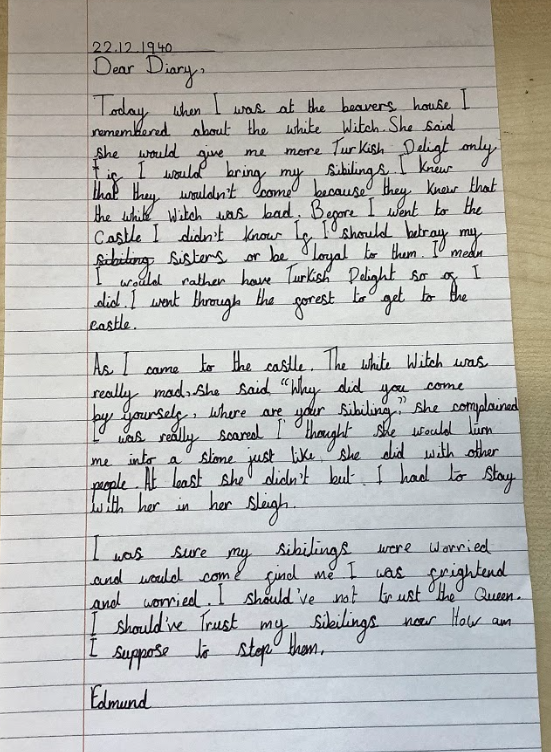 22.12.1940
Dear Diary,
Today when I was at the beavers house I
remembered about the white Witch. She said
she would give me more Turkish Deligt only
if I would bring my sibilings. I knew
that they wouldn't come because they knew that
the white Witch was bad. Before I went to the
Castle I didn't know if I should betray my
sibiling sisters or be loyal to them. I mean
I would rather have Turkish Delight so of I
did. I went through the forest to get to the
castle.
As I came to the castle. The white Witch was
really mad. She said "Why did you come
by yourself, where are your sibiling," she complained
I was really scared I thought she would turn
me into a stone just like she did with other
people. At least she didn't but I had to stay
with her in her sleigh.
I was sure my sibilings were worried
and would come find me I was frightend
and worried. I should've not trust the Queen.
I should've Trust my sibilings now How am
I suppose to stop them.
Edmund